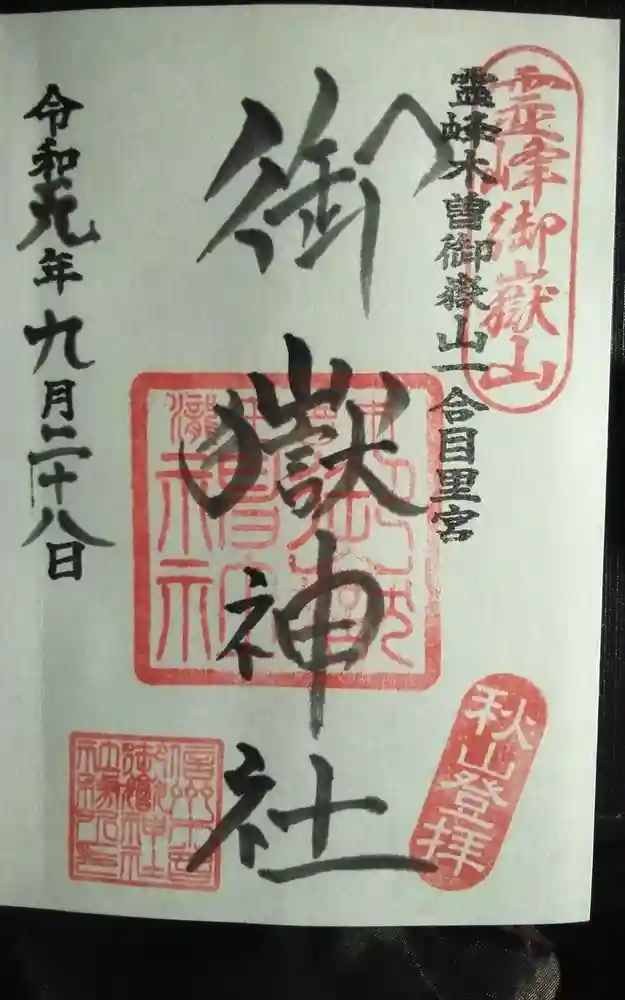 霊峰御嶽山
霊峰木曽御嶽山一合目里宮
御嶽神社
秋山登拝
令和元年九月二十八日